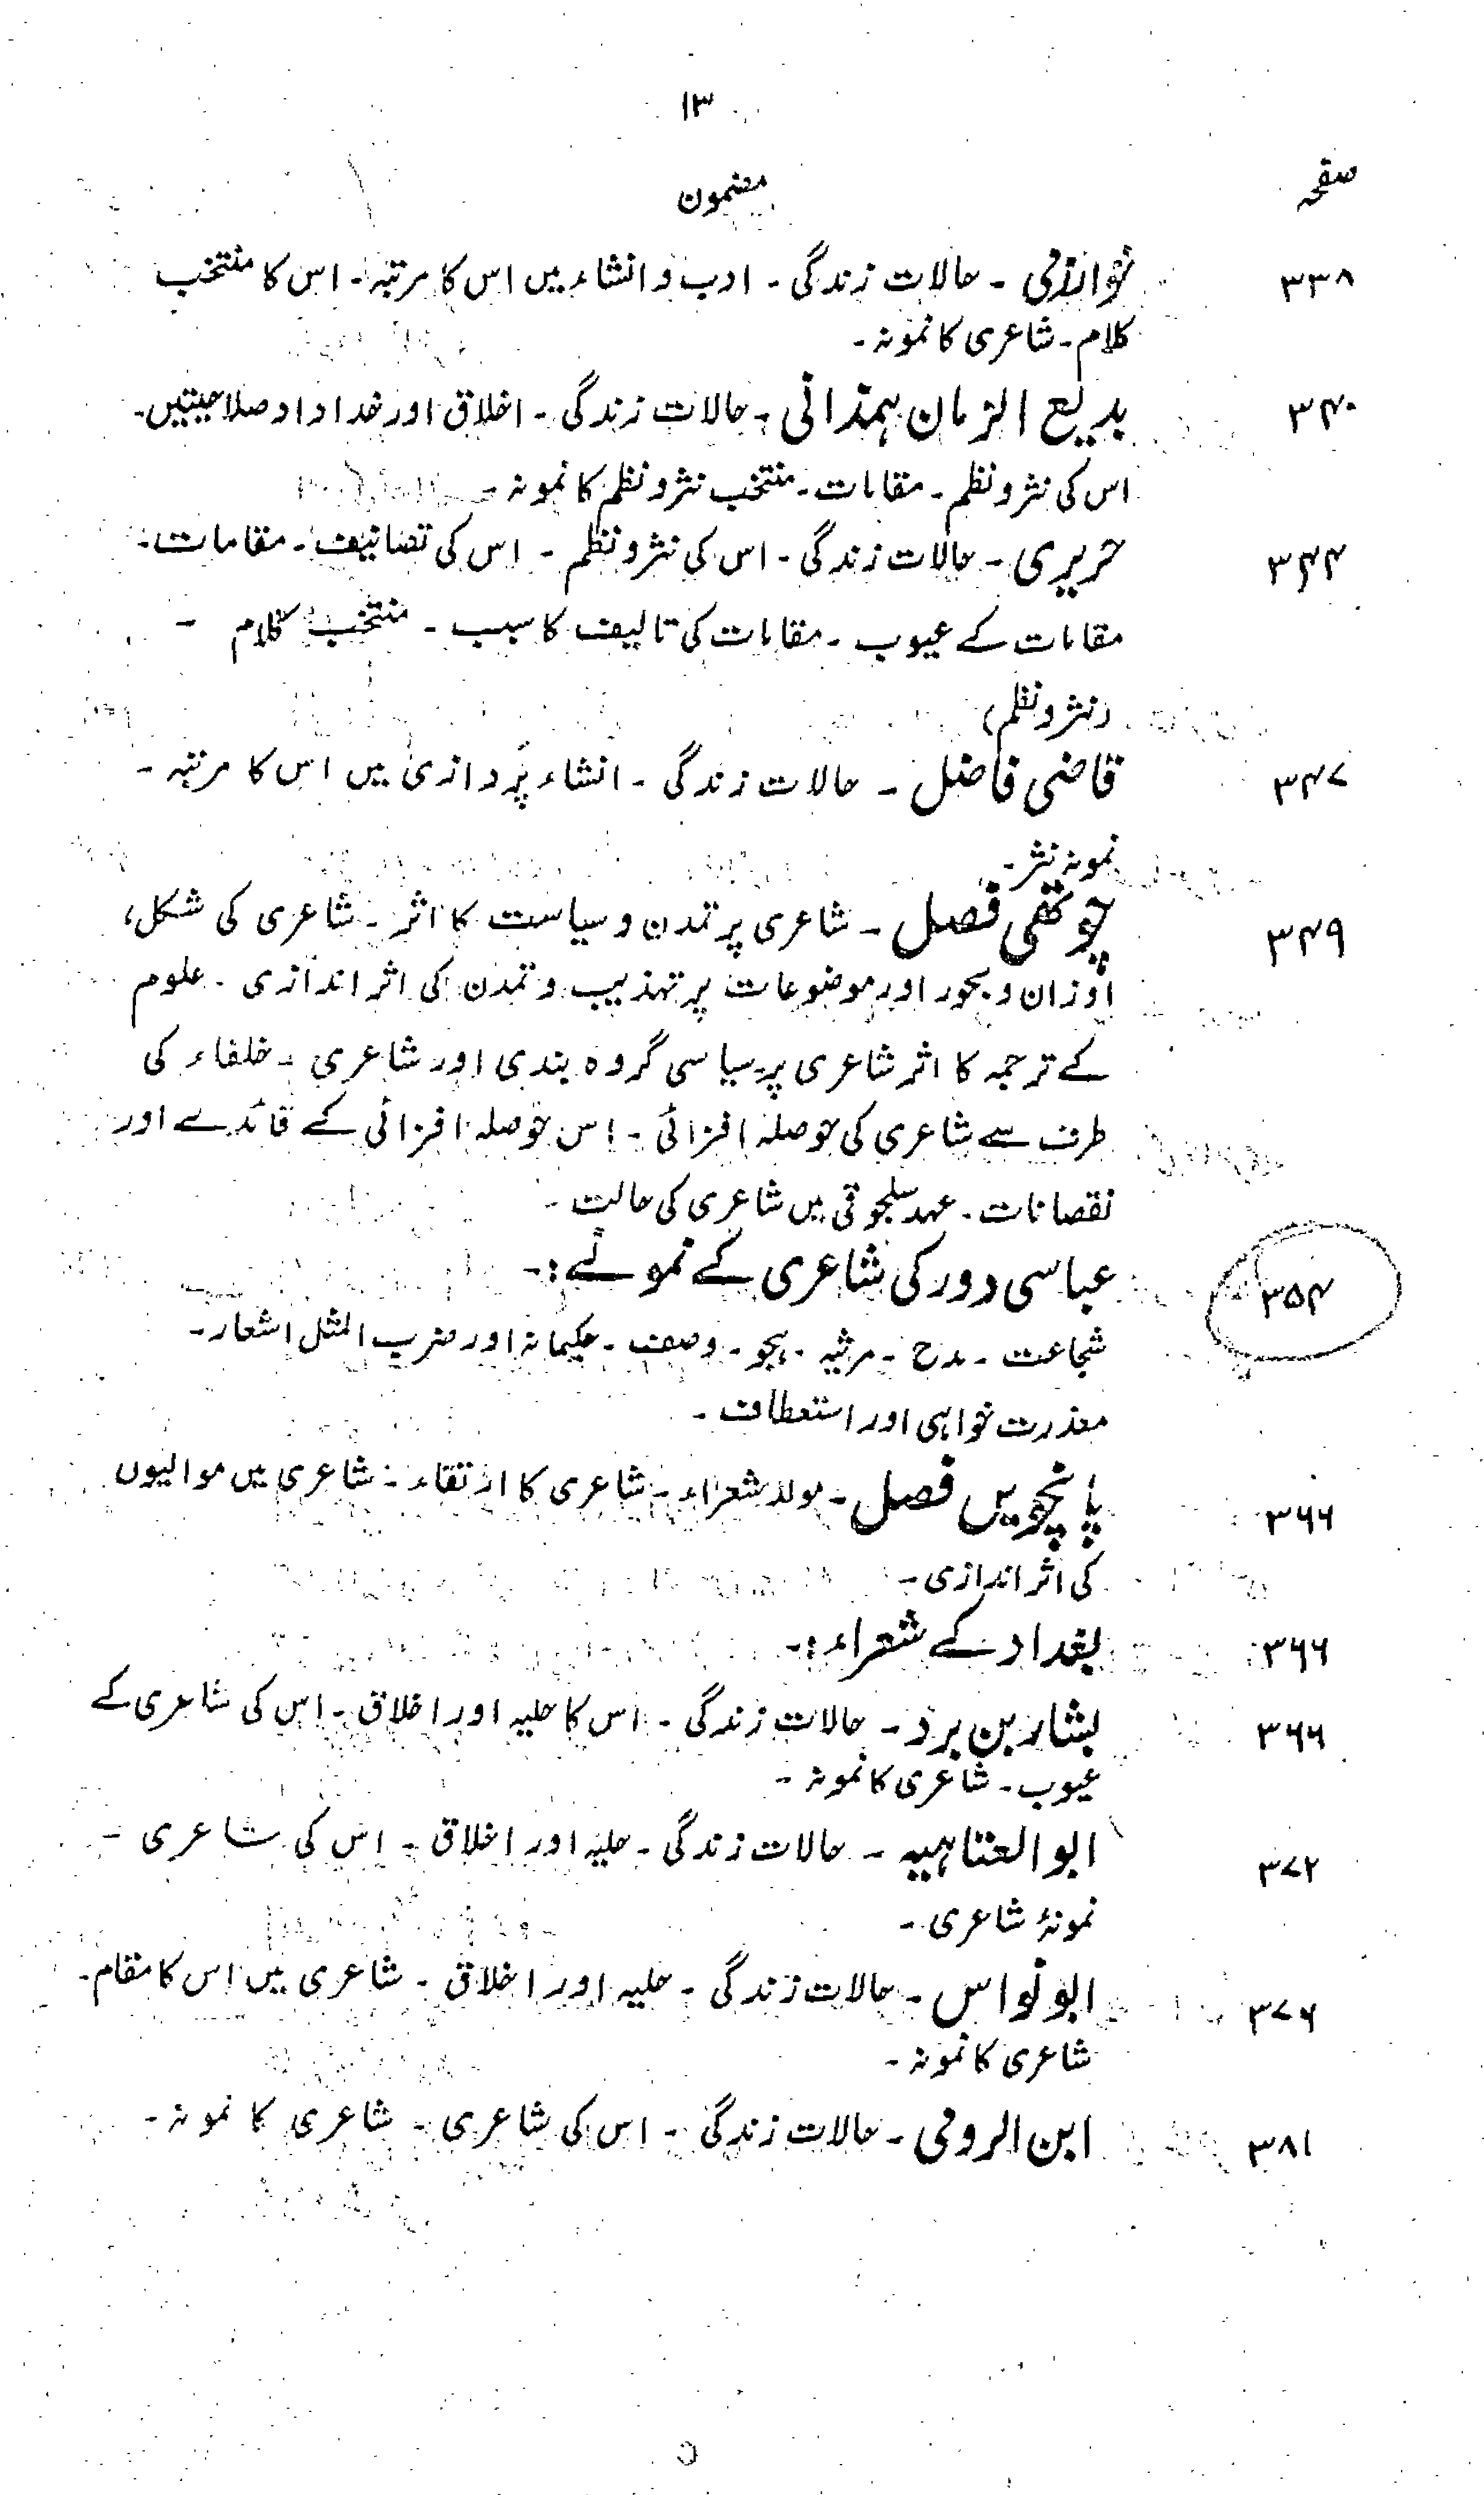 ۱۳
صفحہ مضمون
۳۳۸ خوارزمی ۔ حالات زندگی ۔ ادب و انشاء میں اس کا مرتبہ ۔ اس کا منتخب
کلام ۔ شاعری کا نمونہ ۔
۳۴۰ بدیع الزمان ہمذانی ۔ حالات زندگی ۔ اخلاق اور خداداد صلاحیتیں ۔
اس کی نثر و نظم ۔ مقامات ۔ منتخب نثر و نظم کا نمونہ ۔
۳۴۴ حریری ۔ حالات زندگی ۔ اس کی نثر و نظم ۔ اس کی تصانیف ۔ مقامات ۔
مقامات کے عیوب ۔ مقامات کی تالیف کا سبب ۔ منتخب کلام ۔
(نثر و نظم)
۳۴۷ قاضی فاضل ۔ حالات زندگی ۔ انشاء پردازی میں اس کا مرتبہ ۔
نمونہ نثر ۔
۳۴۹ چوتھی فصل ۔ شاعری پر تمدن و سیاست کا اثر ۔ شاعری کی شکل،
اوزان و بحور اور موضوعات پر تہذیب و تمدن کی اثر اندازی ۔ علوم
کے ترجمہ کا اثر شاعری پر ۔ سیاسی گروہ بندی اور شاعری ۔ خلفاء کی
طرف سے شاعری کی حوصلہ افزائی ۔ اس حوصلہ افزائی کے فائدے اور
نقصانات ۔ عہد سلجوقی میں شاعری کی حالت ۔
۳۵۴ عباسی دور کی شاعری کے نمونے :۔
شجاعت ۔ مدح ۔ مرثیہ ۔ ہجو ۔ وصف ۔ حکیمانہ اور ضرب المثل اشعار ۔
معذرت خواہی اور استعطاف ۔
۳۶۶ پانچویں فصل ۔ مولد شعراء ۔ شاعری کا ارتقاء ۔ شاعری میں موالیوں
کی اثر اندازی ۔
۳۶۶ بغداد کے شعراء :۔
۳۶۶ بشار بن برد ۔ حالات زندگی ۔ اس کا حلیہ اور اخلاق ۔ اس کی شاعری کے
عیوب ۔ شاعری کا نمونہ ۔
۳۷۲ ابو العتاہیہ ۔ حالات زندگی ۔ حلیہ اور اخلاق ۔ اس کی شاعری ۔
نمونۂ شاعری ۔
۳۷۶ ابو نواس ۔ حالات زندگی ۔ حلیہ اور اخلاق ۔ شاعری میں اس کا مقام ۔
شاعری کا نمونہ ۔
۳۸۱ ابن الرومی ۔ حالات زندگی ۔ اس کی شاعری ۔ شاعری کا نمونہ ۔